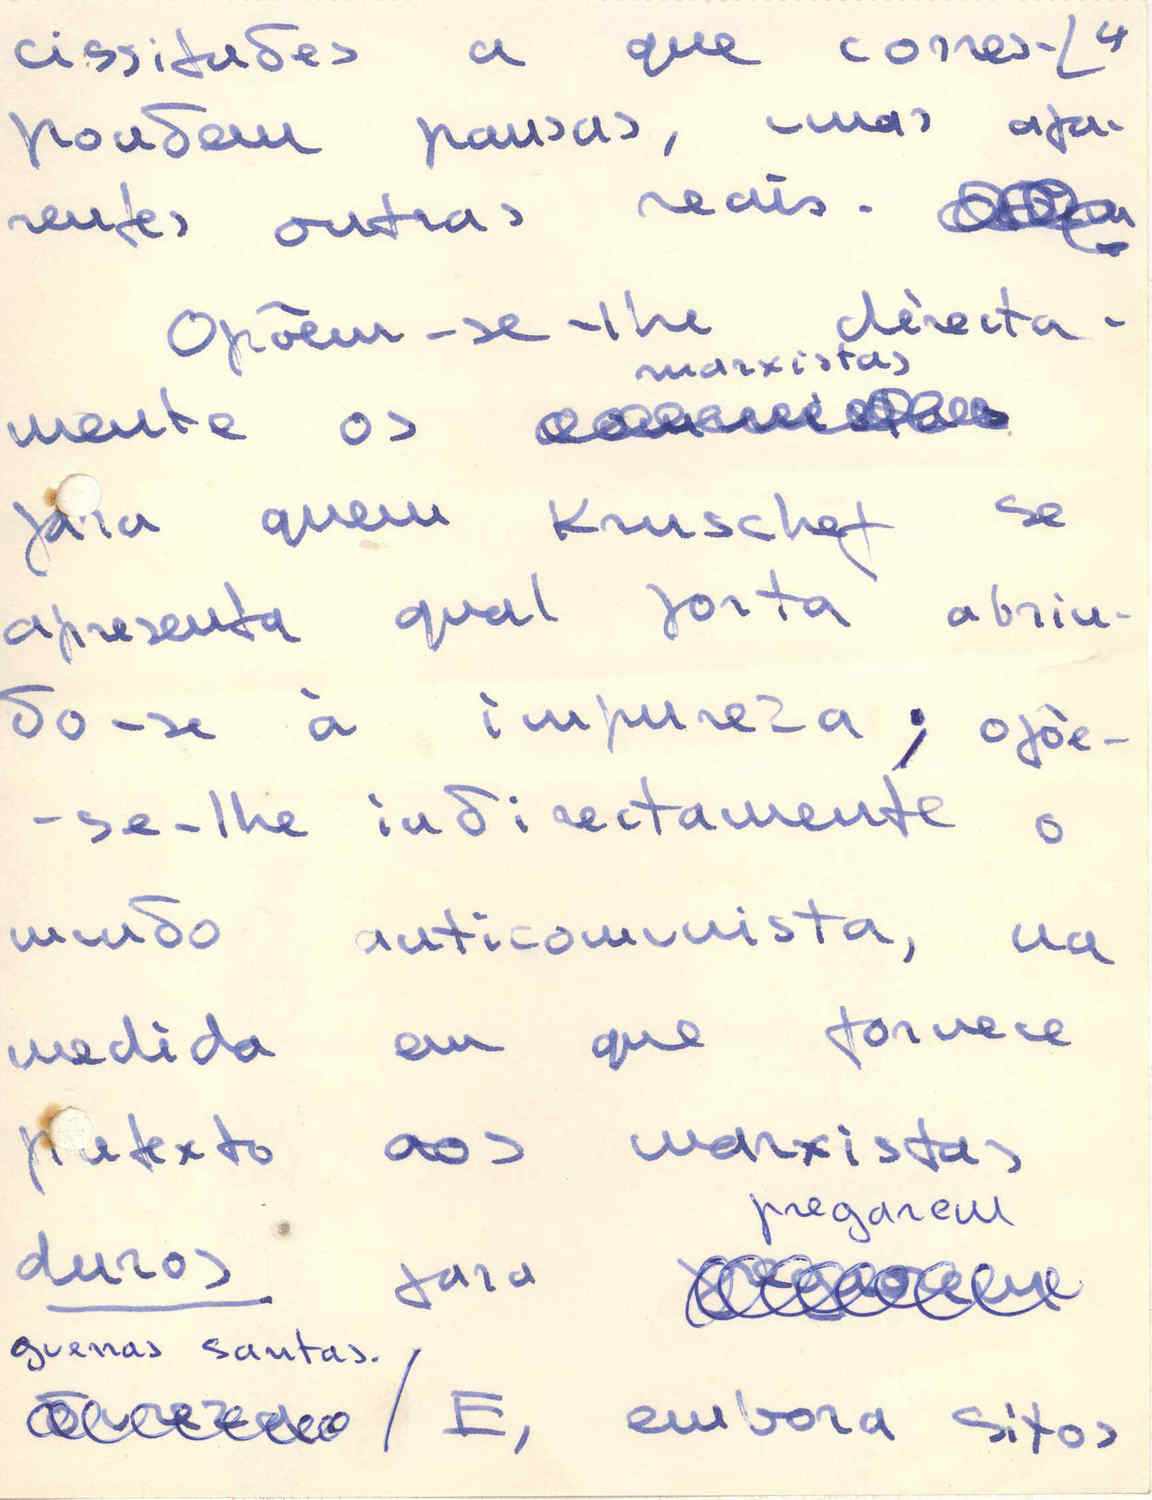 cissitudes a que corres- 4
pondem pausas, umas apa-
rentes outras reais.
Opõem-se-lhe directa-
marxistas
mente os
para quem Kruschef se
apresenta qual porta abrin-
do-se à impureza; opõe-
-se-lhe indirectamente o
mundo anticomunista, na
medida em que fornece
pretexto aos marxistas
pregarem
duros para
guerras santas.
/ E, embora sitos